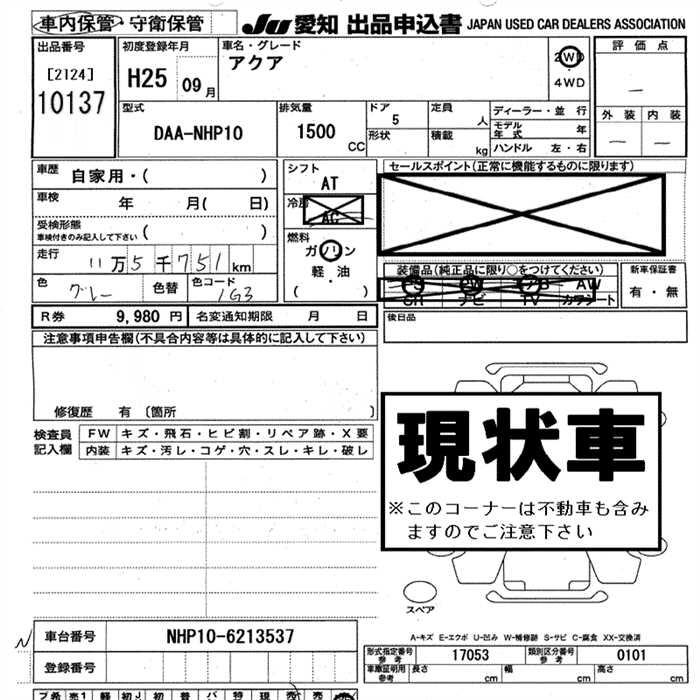 車内保管・守衛保管 JU 愛知 出品申込書 JAPAN USED CAR DEALERS ASSOCIATION
出品番号 初度登録年月 車名・グレード 評価点
[2124] H25 09月 アクア 2WD ・ 4WD
10137
型式 排気量 ドア 定員 ディーラー・並行 外装 内装
DAA-NHP10 1500 CC 5 人 モデル年式 年
形状 積載 kg ハンドル 左・右
車歴 自家用・( ) シフト セールスポイント(正常に機能するものに限ります)
AT
車検 年 月( 日) 冷房
AC
受検形態 車検付きのみ記入して下さい ( ) 燃料
走行 11万5千751km ガソリン
軽・油
( ・ )
装備品(純正品に限り○をつけてください) 新車保証書
色 グレー 色替 色コード 1G3 AW 有・無
ナビ TV
R券 9,980 円 名変通知期限 月 日 後日品
注意事項申告欄(不具合内容等は具体的に記入して下さい)
修復歴 有 〔箇所 〕
現状車
※このコーナーは不動車も含みますのでご注意下さい
検査員記入欄 FW キズ・飛石・ヒビ割・リペア跡・X要
内装 キズ・汚レ・コゲ・穴・スレ・キレ・破レ
スペア
A-キズ E-エクボ U-凹み W-補修跡 S-サビ C-腐食 XX-交換済
車台番号 NHP10-6213537
形式指定番号 参考 17053 類別区分番号 参考 0101
登録番号 車庫証明用 参考 長さ cm 幅 cm 高さ cm